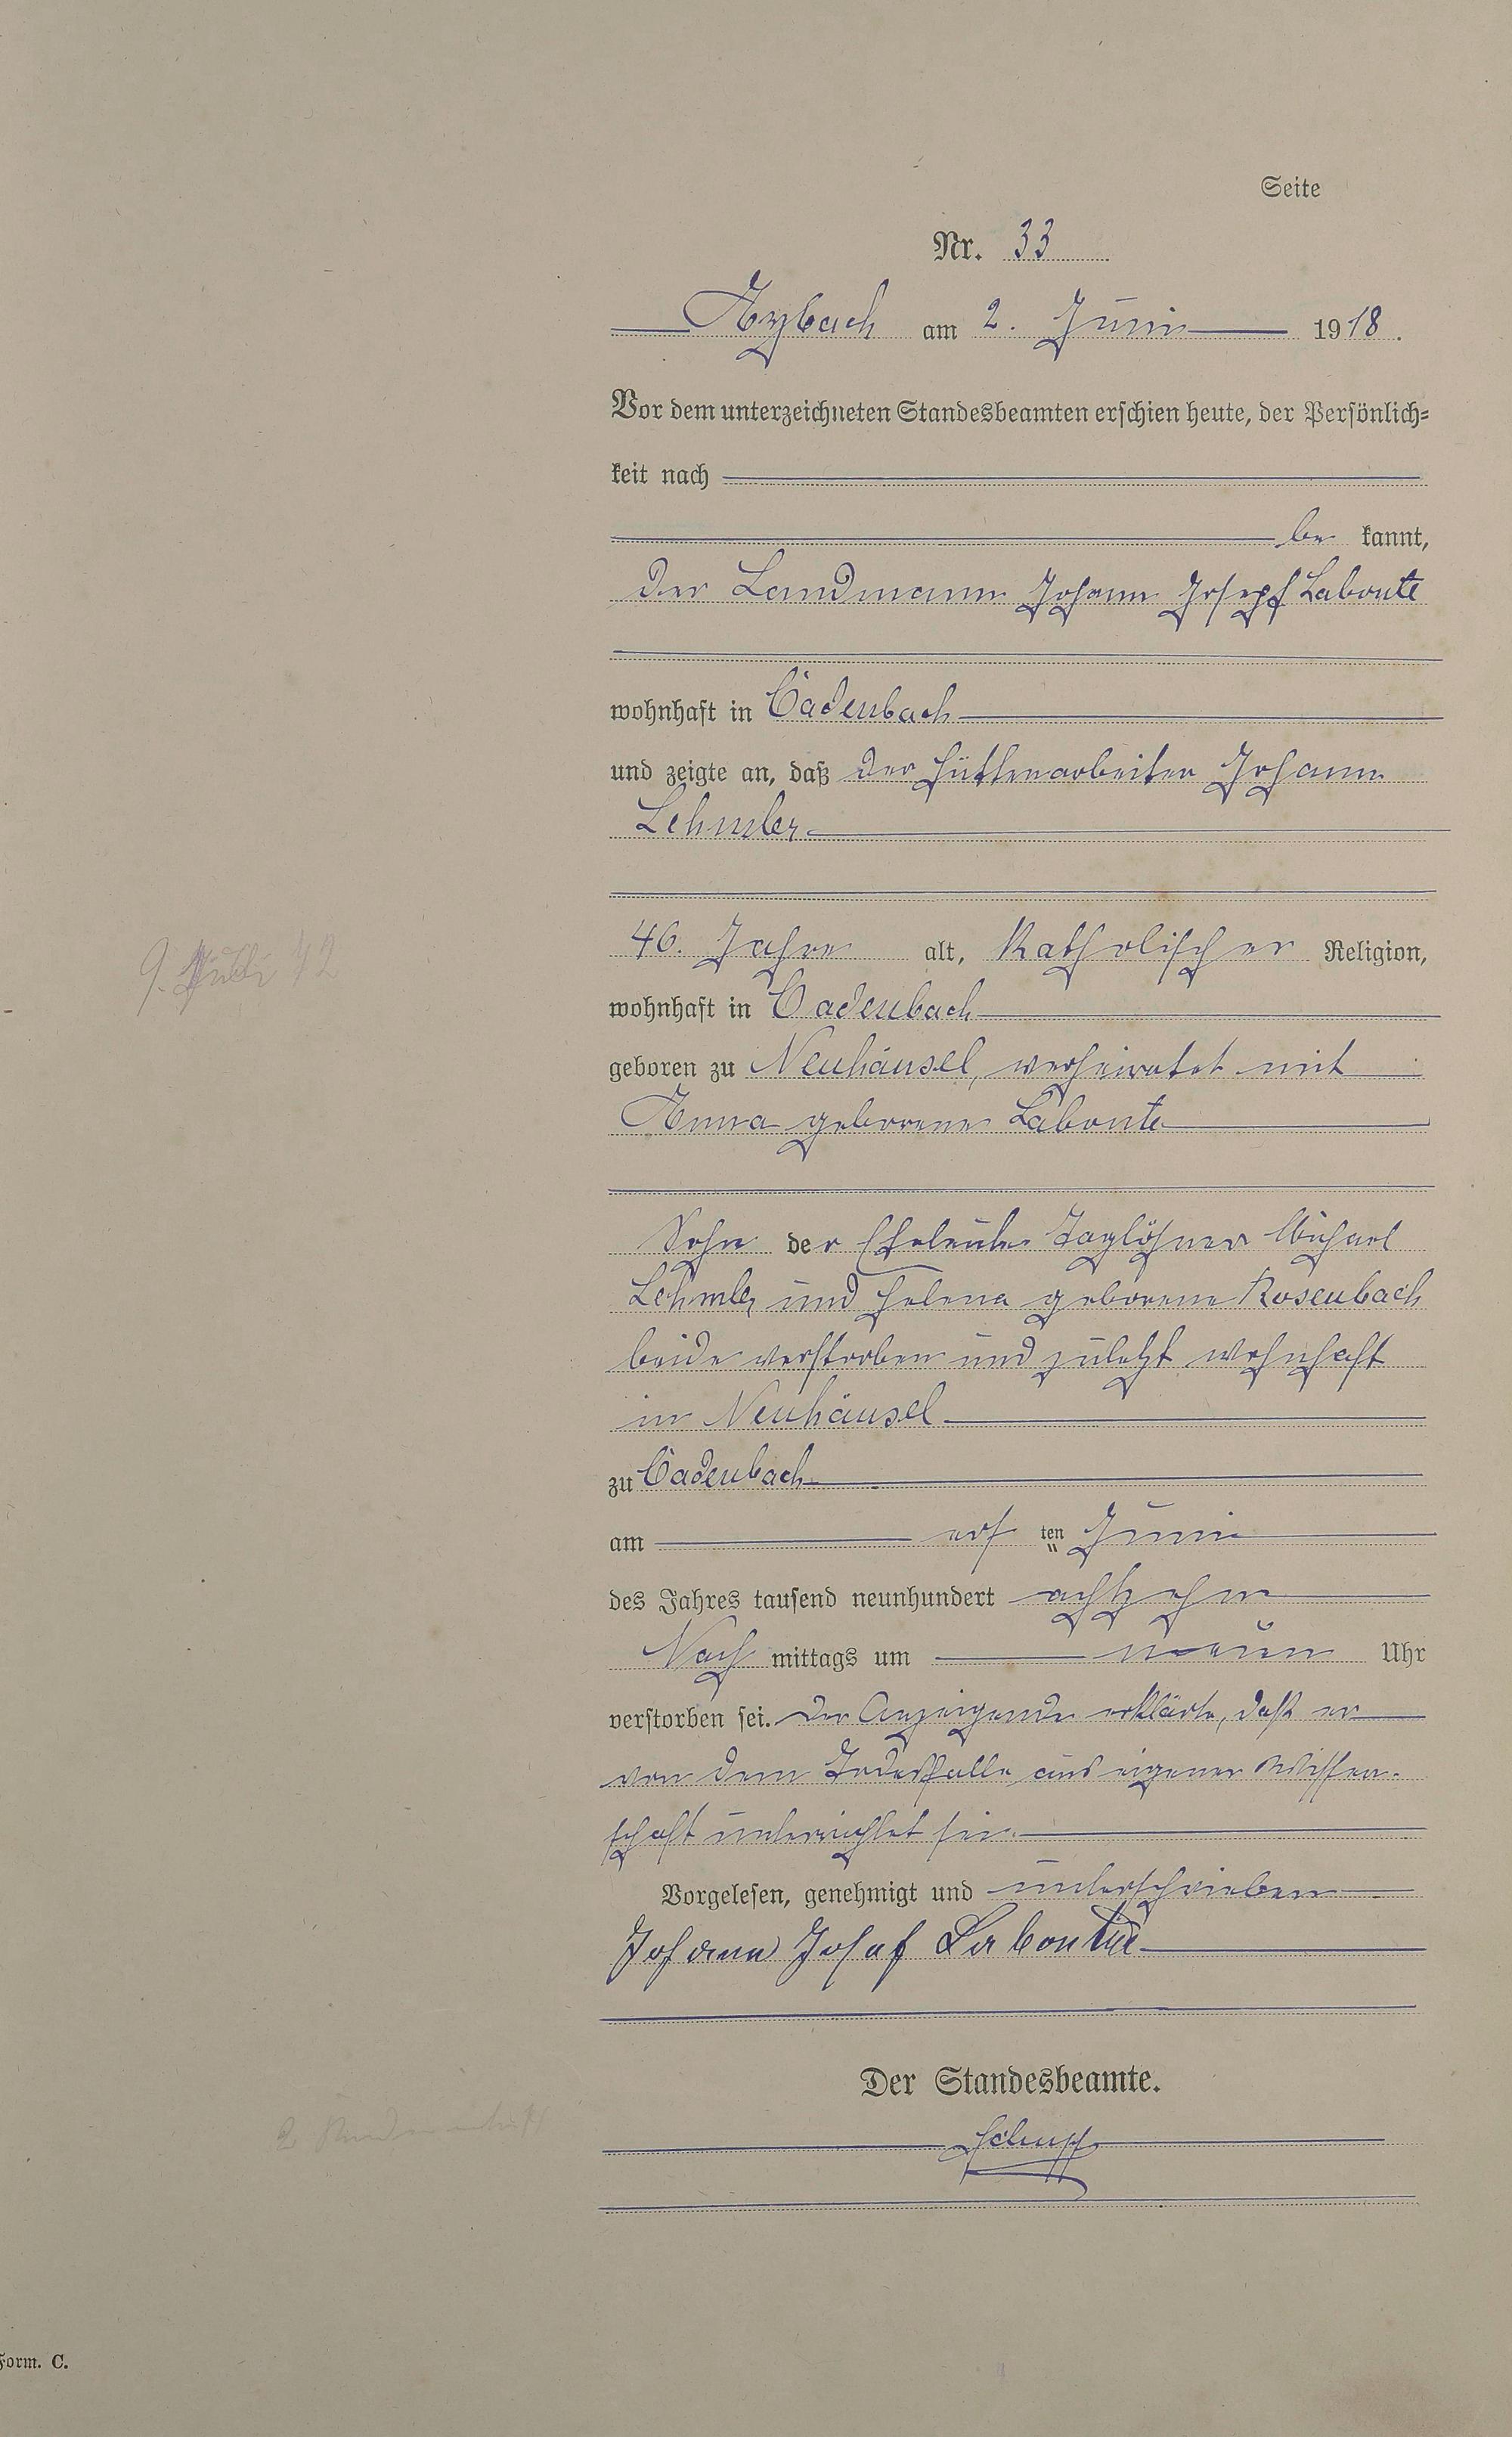 Seite
Nr. 33
Arzbach am 2. Juni 1918.
Vor dem unterzeichneten Standesbeamten erschien heute, der Persönlich=
keit nach
be kannt,
der Landmann Johann Joseph Labonte
wohnhaft in Cadenbach
und zeigte an, daß der Hüttenarbeiter Johann
Lehmler
46. Jahre alt, Katholischer Religion,
wohnhaft in Cadenbach
geboren zu Neuhäusel, verheiratet mit
Anna geborene Labonte
Sohn der Eheleute Taglöhner Michael
Lehmler und Helena geborene Rosenbach
beide verstorben und zuletzt wohnhaft
in Neuhäusel
zu Cadenbach
am ersten Juni
des Jahres tausend neunhundert achtzehn
Nach mittags um neun Uhr
verstorben sei. Der Anzeigende erklärte, daß er
von dem Todesfalle aus eigener Wissen-
schaft unterrichtet sei.
Vorgelesen, genehmigt und unterschrieben
Johann Josef Labonte
9. Juli 42
Der Standesbeamte.
Form. C.